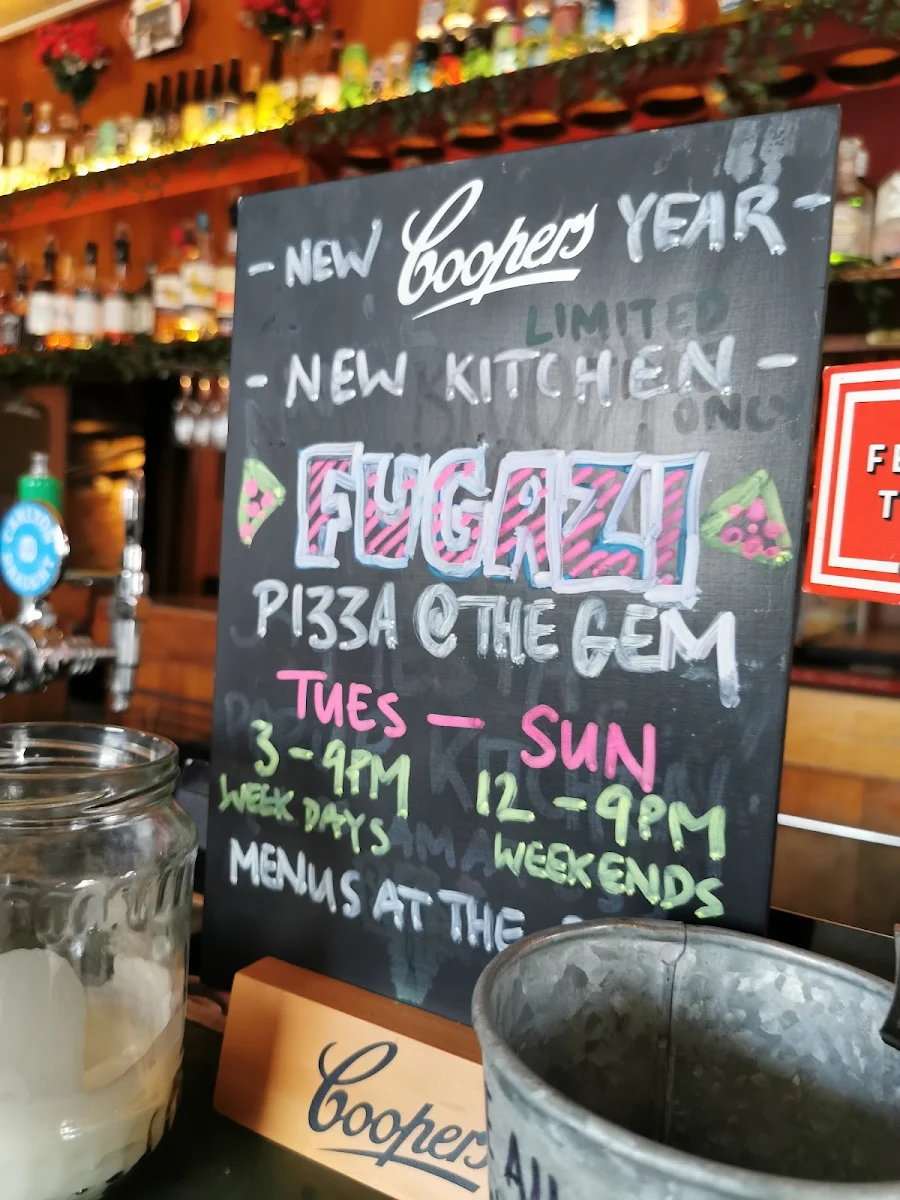 - NEW Coopers YEAR -
LIMITED
- NEW KITCHEN -
ONLY
FUGAZI
PIZZA @ THE GEM
TUES - SUN
3-9PM
WEEK DAYS
12-9PM
WEEKENDS
MENUS AT THE
Coopers
CARLTON
DRAUGHT